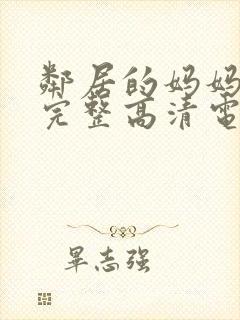 鄰居的妈妈
完整高清電
畢志强